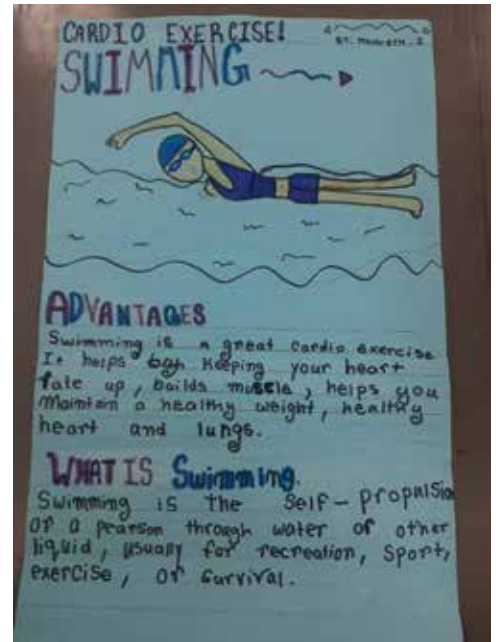 CARDIO EXERCISE!
SWIMMING
ADVANTAGES
Swimming is a great cardio exercise
It helps by keeping your heart
rate up, builds muscle, helps you
Maintain a healthy weight, healthy
heart and lungs.
WHAT IS Swimming.
Swimming is the Self-propulsion
of a pearson through water or other
liquid, usually for recreation, Sport,
exercise, or Survival.